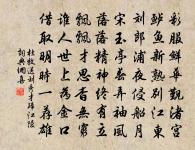 彩服鮮華覲渚宮
鱸魚新熟別江東
劉郎浦夜侵船月
宋玉亭春弄袖風
落落精神終有立
飄飄才思杳無窮
誰人世上為金口
借取明時一薦雄
杜牧送劉秀才歸江陵
詞典網